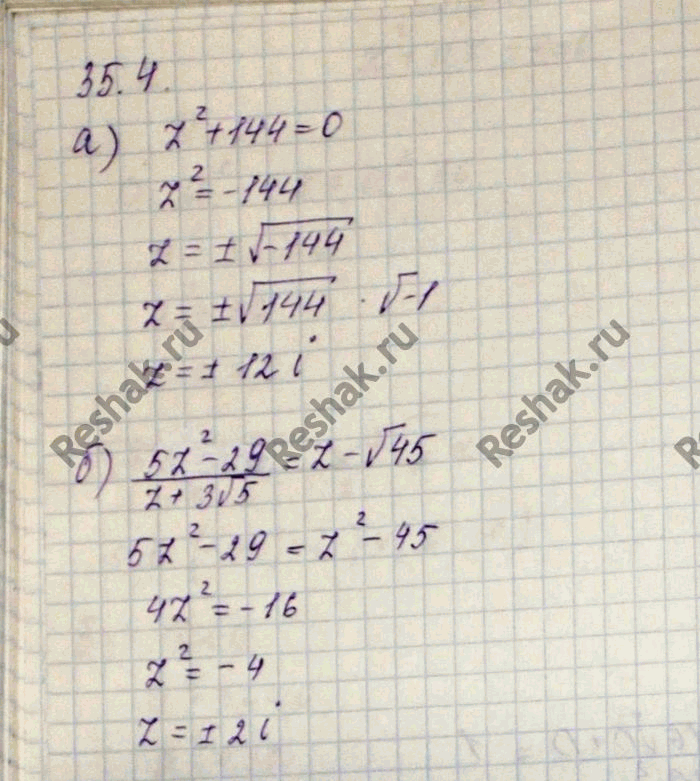 35.4.
а) z² + 144 = 0
z² = -144
z = ± √-144
z = ± √144 · √-1
z = ± 12 i
Reshak.ru Reshak.ru Reshak.ru
б) (5z² - 29)/(z + 3√5) = z - √45
5z² - 29 = z² - 45
4z² = -16
z² = -4
z = ± 2i